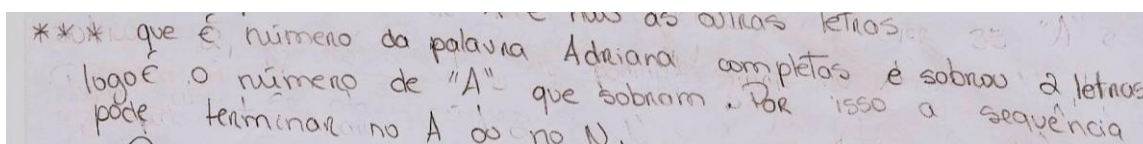 e não as outras letras
*** que é número da palavra Adriana completas e sobrou 2 letras
logo é o número de "A" que sobram. Por isso a sequência
pode terminar no A ou no N.